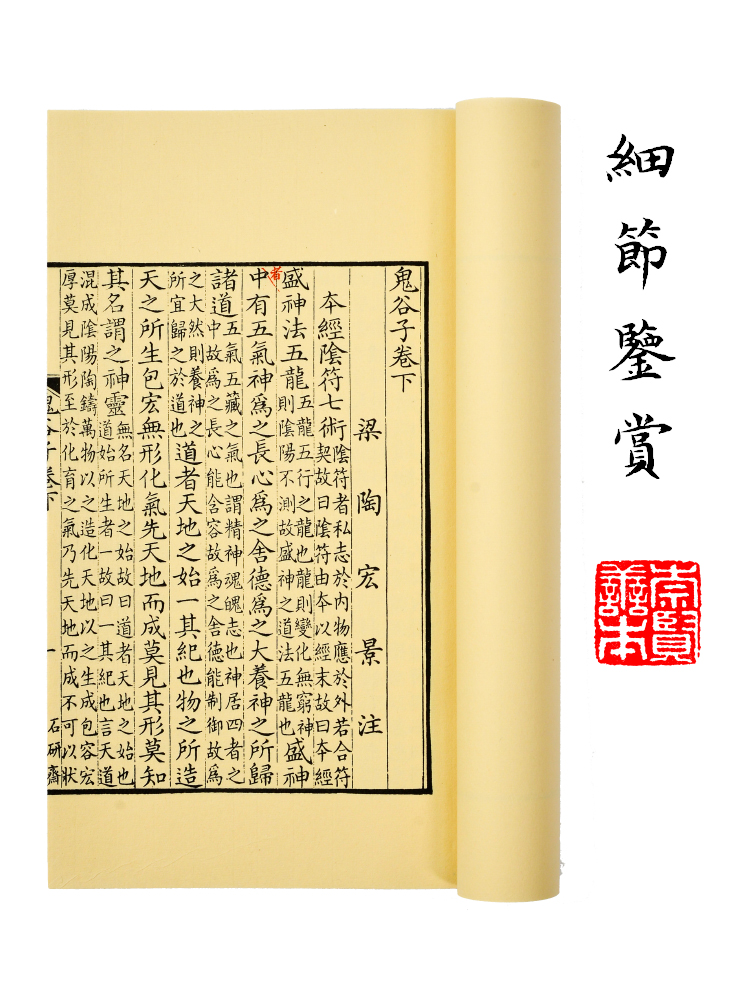 細節鑒賞
索賢譱本
鬼谷子卷下
梁陶宏景注
本經隂符七術隂符者私志於内物應於外若合符
契故曰隂符由本以經末故曰本經
盛神法五龍五龍五行之龍也龍則變化無窮神
則隂陽不測故盛神之道法五龍也盛神
者
中有五氣神爲之長心爲之舍德爲之大養神之所歸
諸道五氣五藏之氣也謂精神魂魄志也神居四者之
中故爲之長心能含容故爲之舍德能制御故爲
之大然則養神之
所宜歸之於道也道者天地之始一其紀也物之所造
天之所生包宏無形化氣先天地而成莫見其形莫知
其名謂之神靈無名天地之始故曰道者天地之始也
道始所生者一故曰一其紀也言天道
混成隂陽陶鑄萬物以之造化天地以之生成包容宏
厚莫見其形至於化育之氣乃先天地而成不可以狀
鬼谷子卷下 一 石研齋